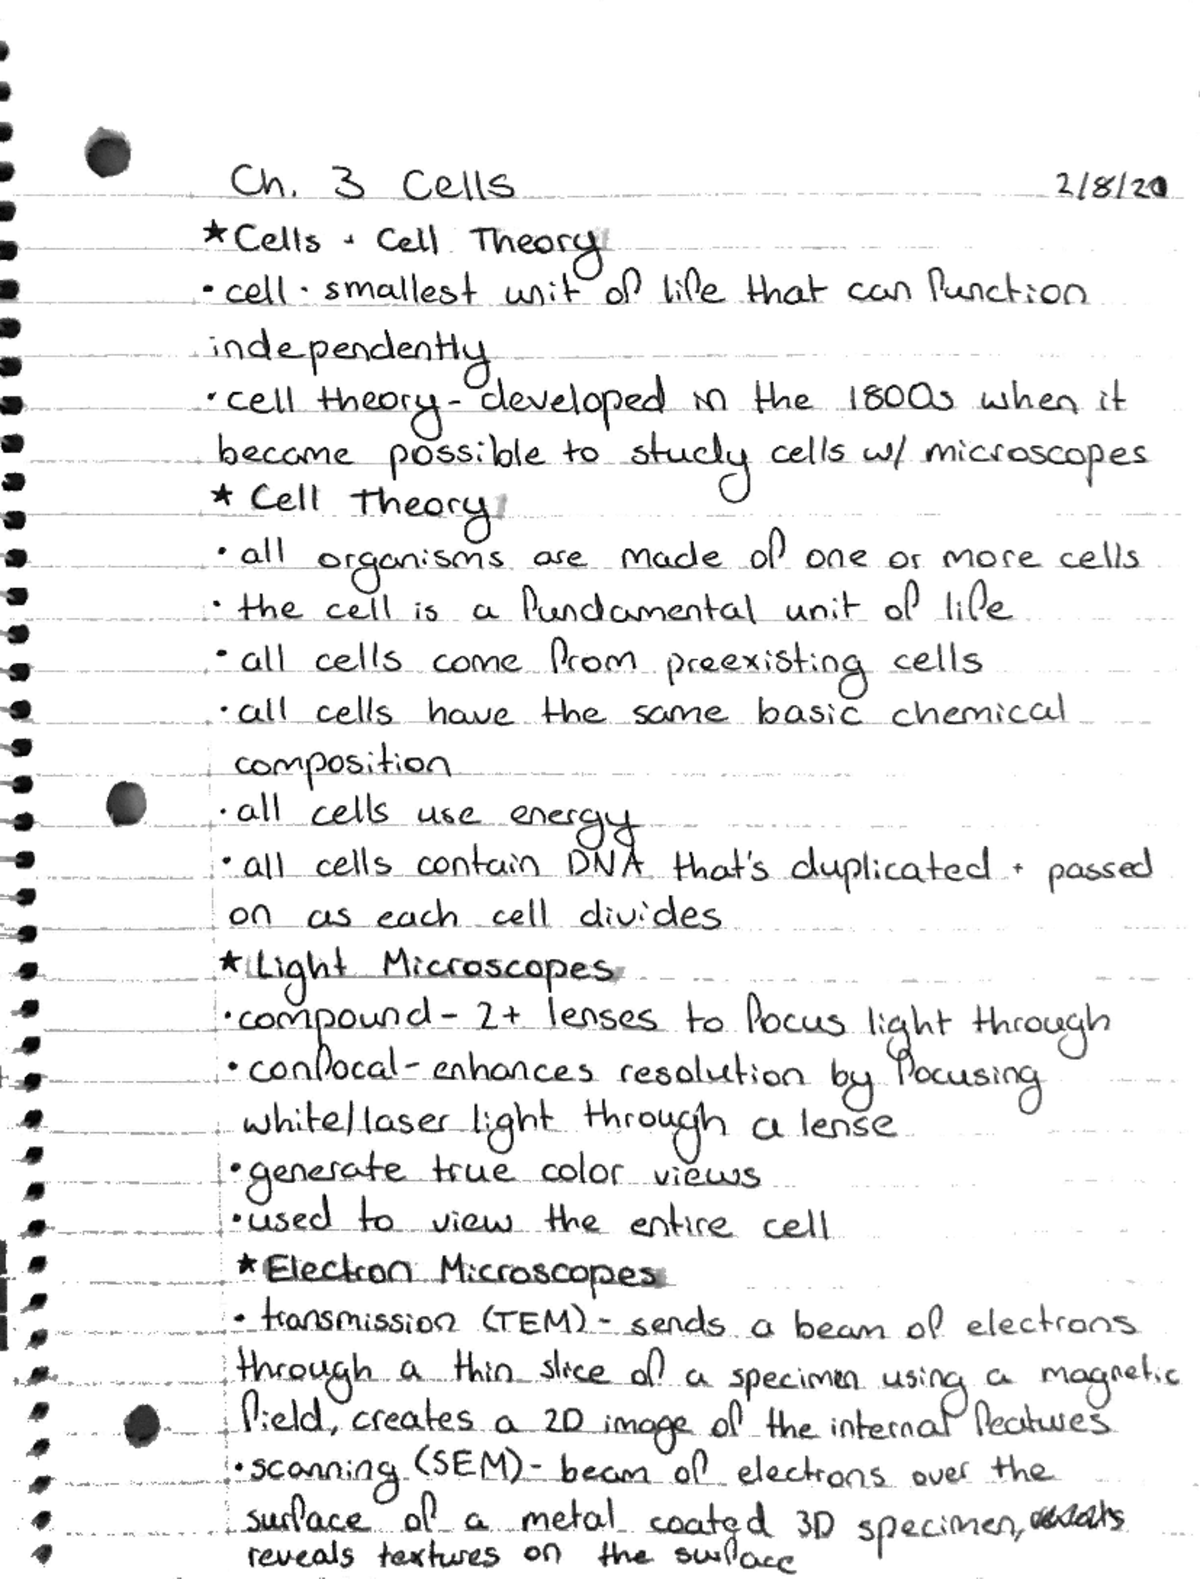 Ch. 3 Cells 2/8/20
★Cells + Cell Theory
• cell - smallest unit of life that can function
independently
• cell theory - developed in the 1800s when it
became possible to study cells w/ microscopes
★ Cell Theory
• all organisms are made of one or more cells
• the cell is a fundamental unit of life
• all cells come from preexisting cells
• all cells have the same basic chemical
composition
• all cells use energy
• all cells contain DNA that's duplicated + passed
on as each cell divides
★ Light Microscopes
• compound - 2+ lenses to focus light through
• confocal - enhances resolution by focusing
white/laser light through a lense
• generate true color views
• used to view the entire cell
★ Electron Microscopes
• transmission (TEM) - sends a beam of electrons
through a thin slice of a specimen using a magnetic
field, creates a 2D image of the internal features
• scanning (SEM) - beam of electrons over the
surface of a metal coated 3D specimen,
reveals textures on the surface